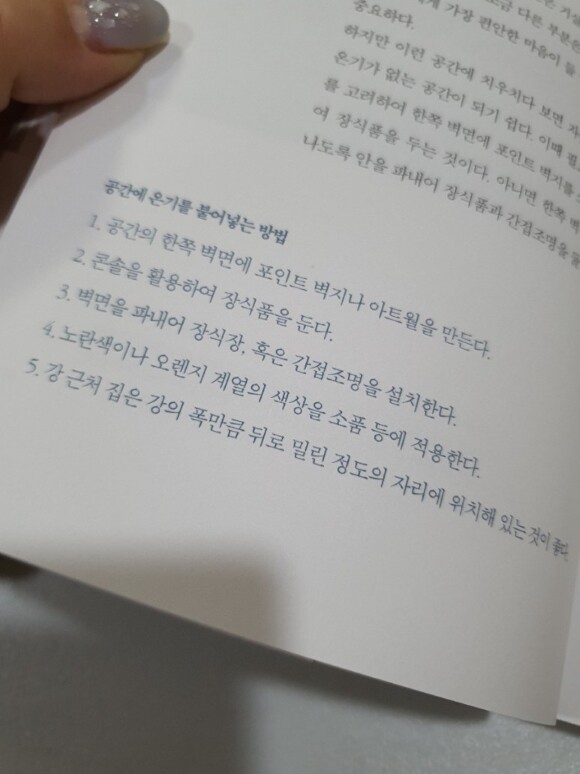 조금 다른 부분은
게 가장 편안한 마음이 들
중요하다.
하지만 이런 공간에 치우치다 보면
온기가 없는 공간이 되기 쉽다. 이때
를 고려하여 한쪽 벽면에 포인트 벽지를
여 장식품을 두는 것이다. 아니면 한쪽
나도록 안을 파내어 장식품과 간접조명을
공간에 온기를 불어넣는 방법
1. 공간의 한쪽 벽면에 포인트 벽지나 아트월을 만든다.
2. 콘솔을 활용하여 장식품을 둔다.
3. 벽면을 파내어 장식장, 혹은 간접조명을 설치한다.
4. 노란색이나 오렌지 계열의 색상을 소품 등에 적용한다.
5. 강 근처 집은 강의 폭만큼 뒤로 밀린 정도의 자리에 위치해 있는 것이 좋다.